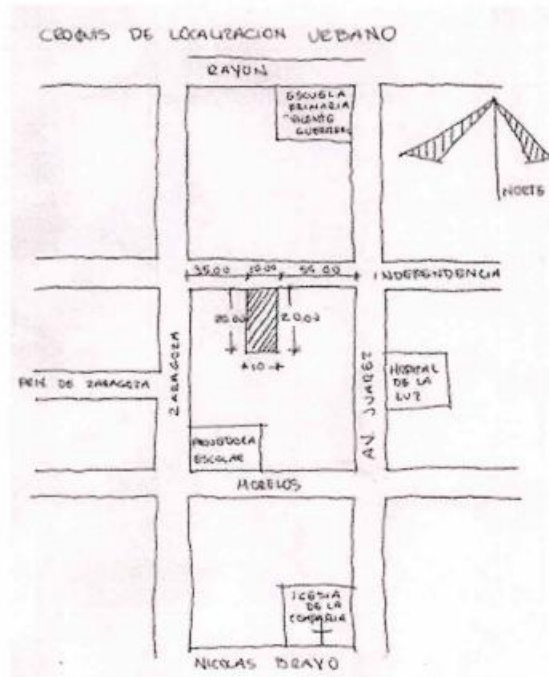 CROQUIS DE LOCALIZACION URBANO
RAYON
ESCUELA
PRIMARIA
"VICENTE
GUERRERO"
NORTE
35.00 10.00 55.00
INDEPENDENCIA
20.00 20.00
10
ZARAGOZA
AV. JUAREZ
HOSPITAL
DE LA
LUZ
PRIV. DE ZARAGOZA
PROVEEDORA
ESCOLAR
MORELOS
IGLESIA
DE LA
COMPAÑIA
NICOLAS BRAVO